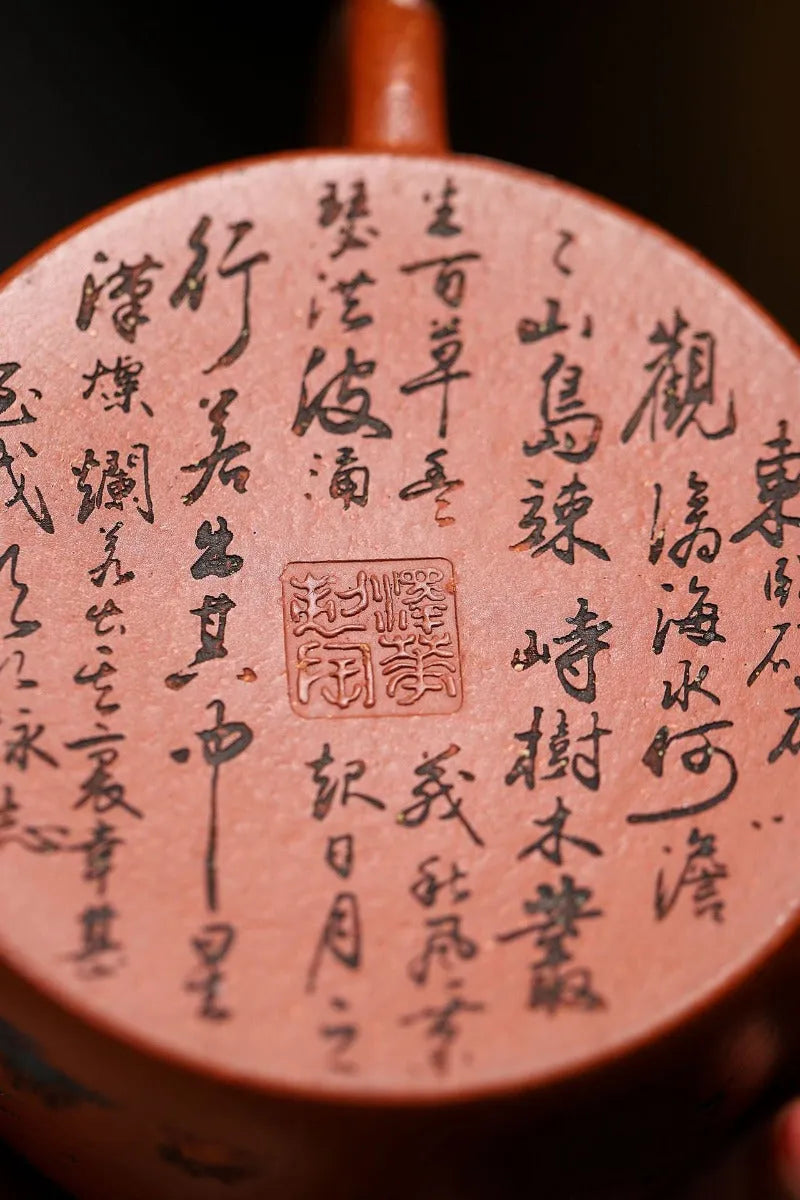 東臨碣石
觀滄海水何澹
〻山島竦峙樹木叢
生百草豐茂秋風蕭
瑟洪波涌起日月之
行若出其中星
漢燦爛若出其裏幸甚
至哉歌以詠志